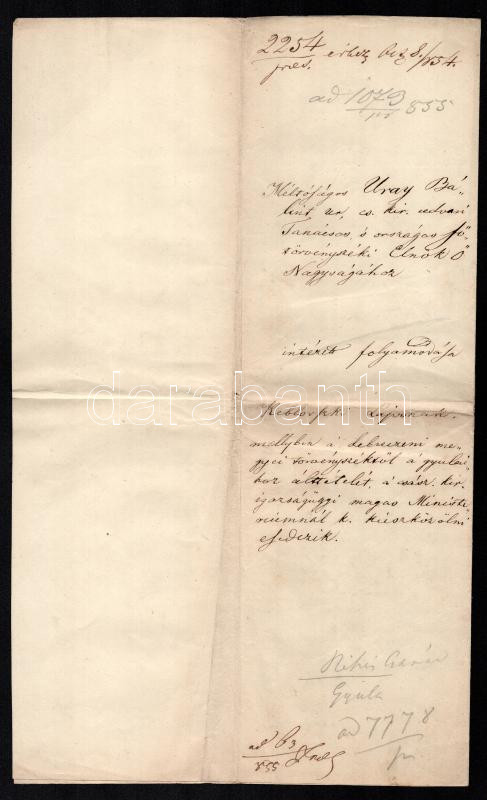 2254 érkez. 8./854.
pres.
ad 1079 855
Méltóságos Uray Bá-
lint úr, cs. kir. udvari
Tanácsos, s országos fő-
törvényszéki Elnök Ő
Nagyságához
intézett folyamodása
Lajosnak.
mellyben a debreczeni me-
gyei törvényszéktől a gyulai-
hoz áttételét, a császi. kir.
igazságügyi magas Ministe-
riumnál k. kieszközölni
esedezik.
darabanth
Gyula
ad 7778
ad 63
855